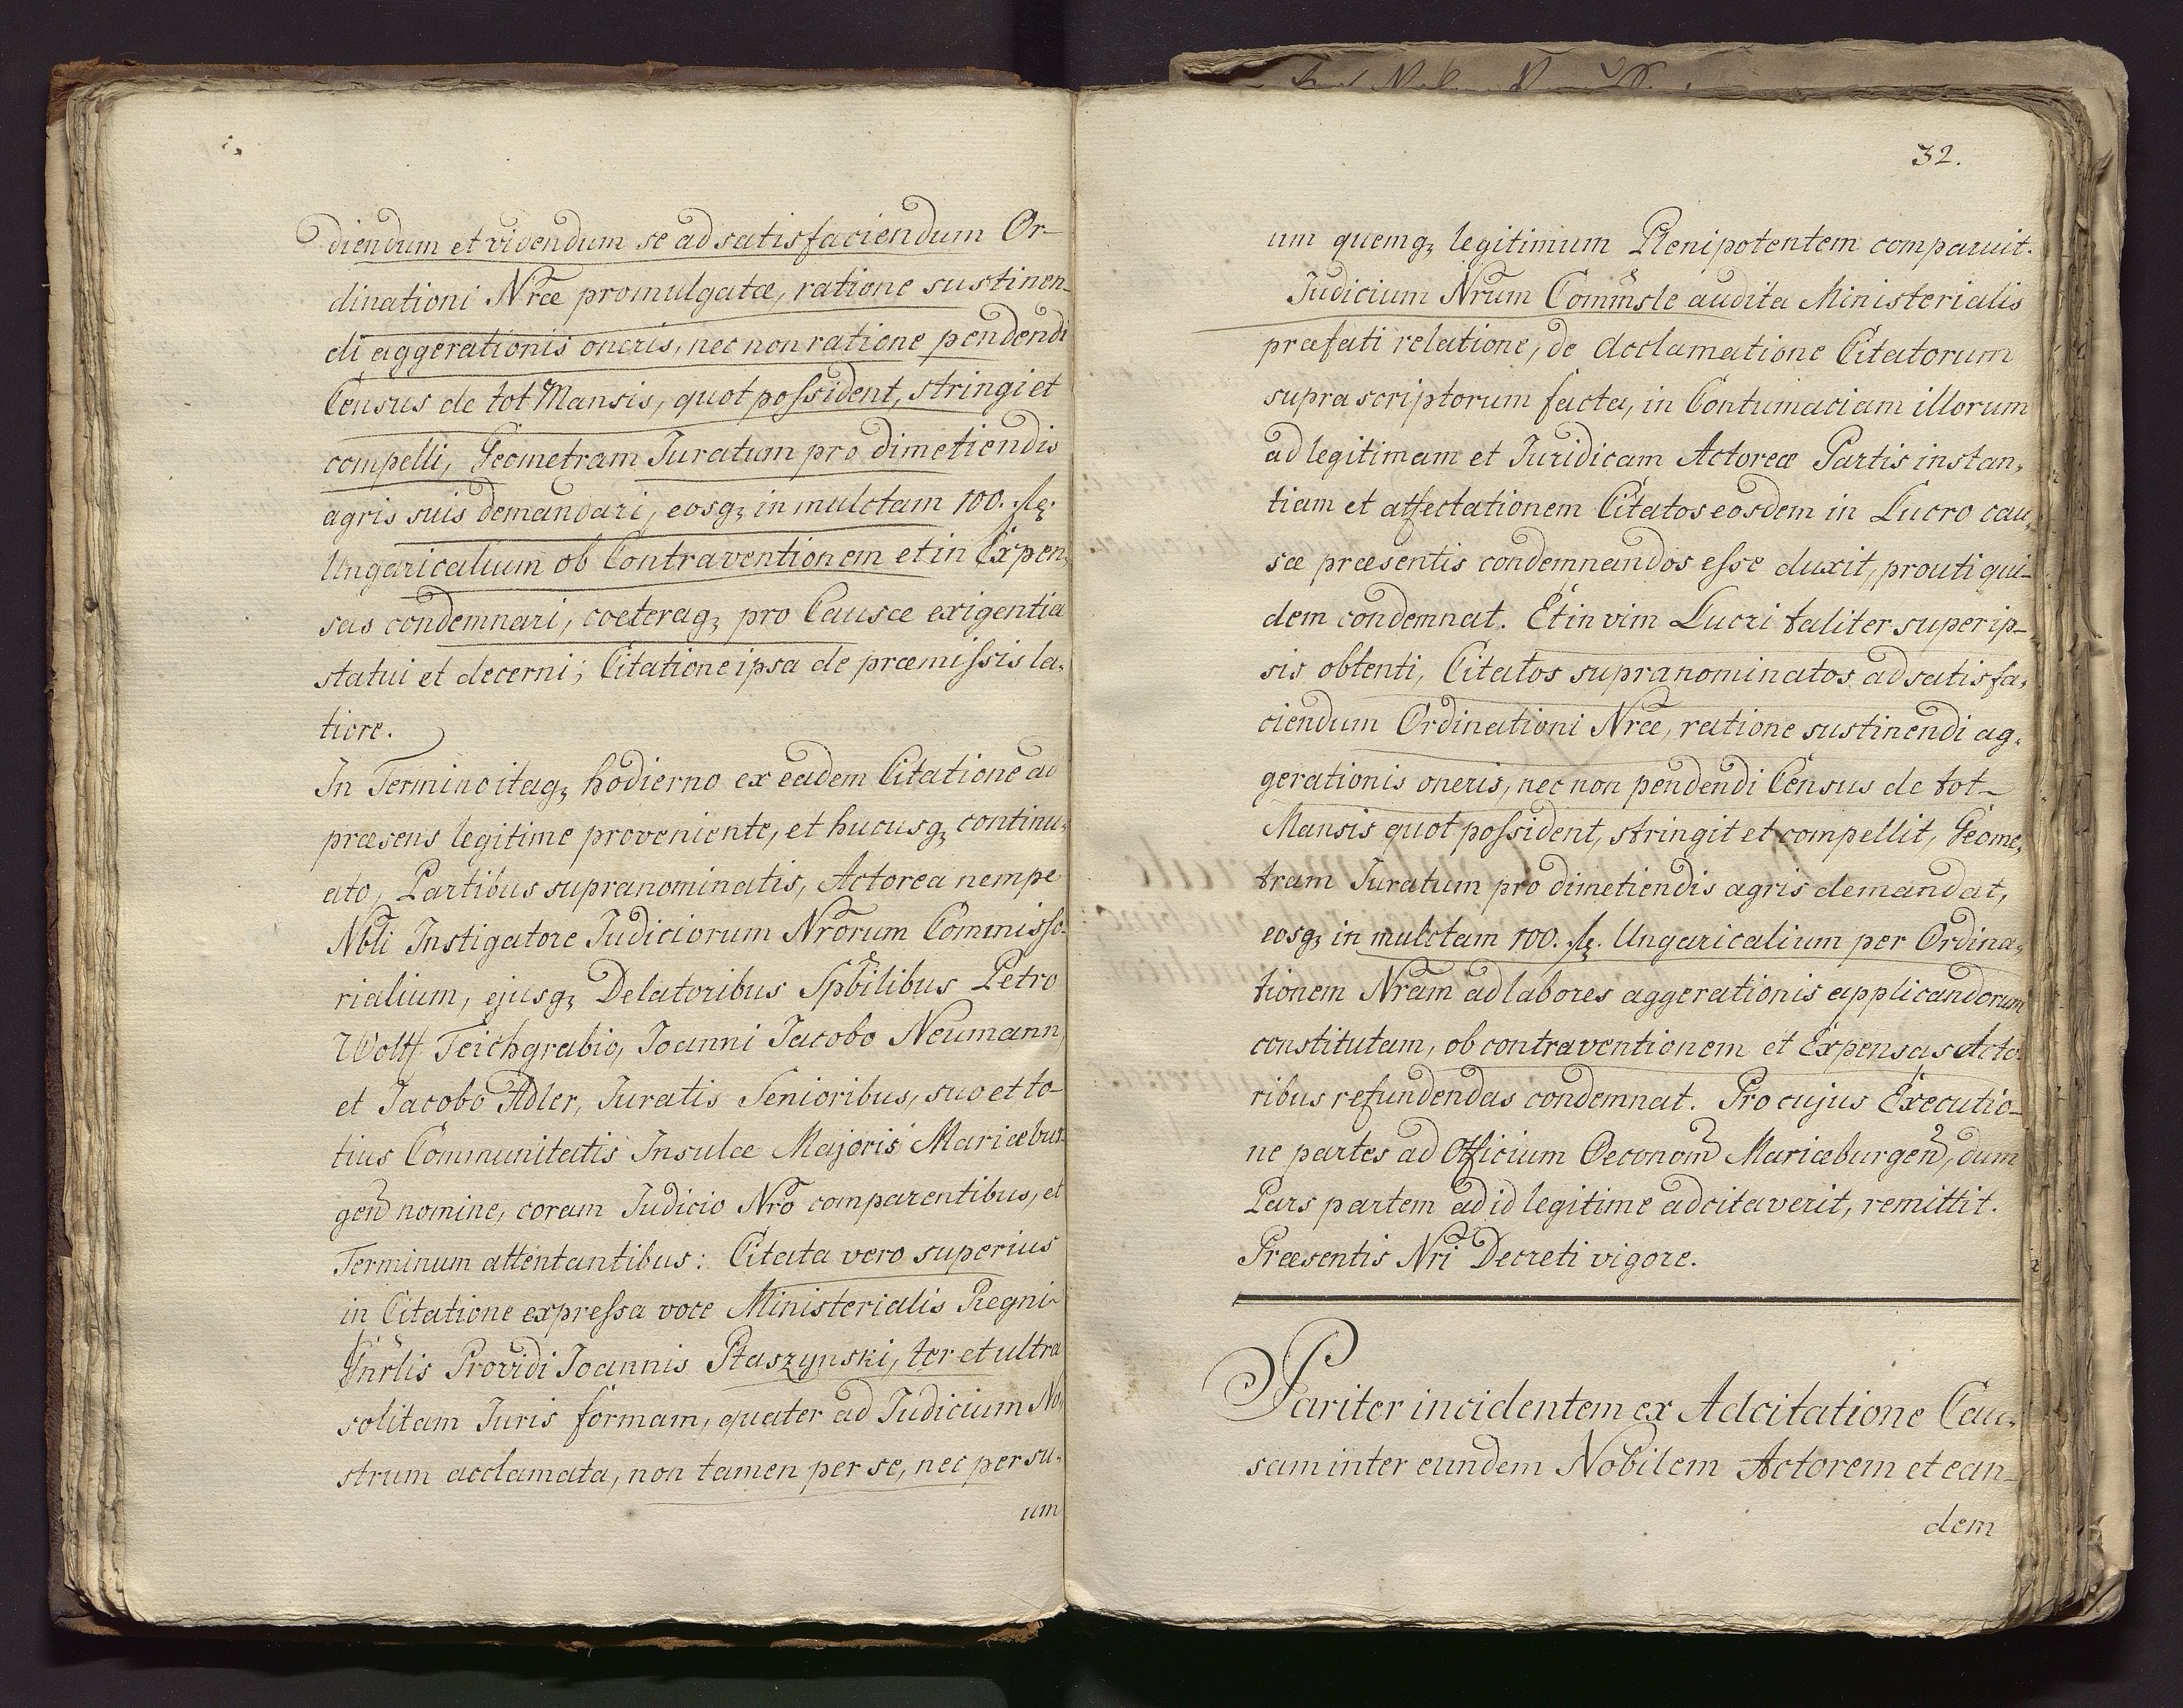 diendum et videndum se ad satisfaciendum Or-
dinationi Nr̃æ promulgatæ, ratione sustinen-
di aggerationis oneris, nec non ratione pendendi
Census de tot Mansis, quot possident, stringi et
compelli, Geometram Juratum pro dimetiendis
agris suis demandari, eosq₃ in mulctam 100. fl.
Ungaricalium ob Contraventionem et in Expen,
sas condemnari, cœteraq₃ pro Causæ exigentia
statui et decerni; Citatione ipsa de præmissis la,
tiore.
In Termino itaq₃ hodierno ex eadem Citatione ad
præsens legitime proveniente, et hucusq₃ continu,
ato, Partibus supranominatis, Actorea nempe
Nbli Instigatore Judiciorum Nr̃orum Commisso-
rialium, ejusq₃ Delatoribus Spbilibus Petro
Wolff Teichgrabio, Joanni Jacobo Neumann,
et Jacobo Adler, Juratis Senioribus, suo et to-
tius Communitatis Insulæ Majoris Mariæbur-
gen̄ nomine, coram Judicio Nr̃o comparentibus, et
Terminum attentantibus: Citata vero superius
in Citatione expressa voce Ministerialis Regni-
Gnr̃lis Providi Joannis Ptaszynski, ter et ultra
solitam Juris formam, quater ad Judicium No,
strum acclamata, non tamen per se, nec per su,
um
32.
um quemq₃ legitimum Plenipotentem comparuit.
Judicium Nr̃um Commsle audita Ministerialis
præfati relatione, de acclamatione Citatorum
supra scriptorum facta, in Contumaciam illorum
ad legitimam et Juridicam Actoreæ Partis instan,
tiam et affectationem Citatos eosdem in Lucro cau,
sæ præsentis condemnandos esse duxit, prouti qui-
dem condemnat. Et in vim Lucri taliter super ip-
sis obtenti, Citatos supranominatos ad satisfa,
ciendum Ordinationi Nr̃æ, ratione sustinendi ag,
gerationis oneris, nec non pendendi Census de tot-
Mansis quot possident, stringit et compellit, Geome,
tram Juratum pro dimetiendis agris demandat,
eosq₃ in mulctam 100. fl. Ungaricalium per Ordina,
tionem Nr̃am ad labores aggerationis applicandorum
constitutam, ob contraventionem et Expensas Acto
ribus refundendas condemnat. Pro cujus Executio-
ne partes ad Officium Oeconom̄ Mariæburgen̄, dum
Pars partem ad id legitime adcitaverit, remittit.
Præsentis Nr̃i Decreti vigore.
Pariter incidentem ex Adcitatione Cau,
sam inter eundem Nobilem Actorem et ean-
dem